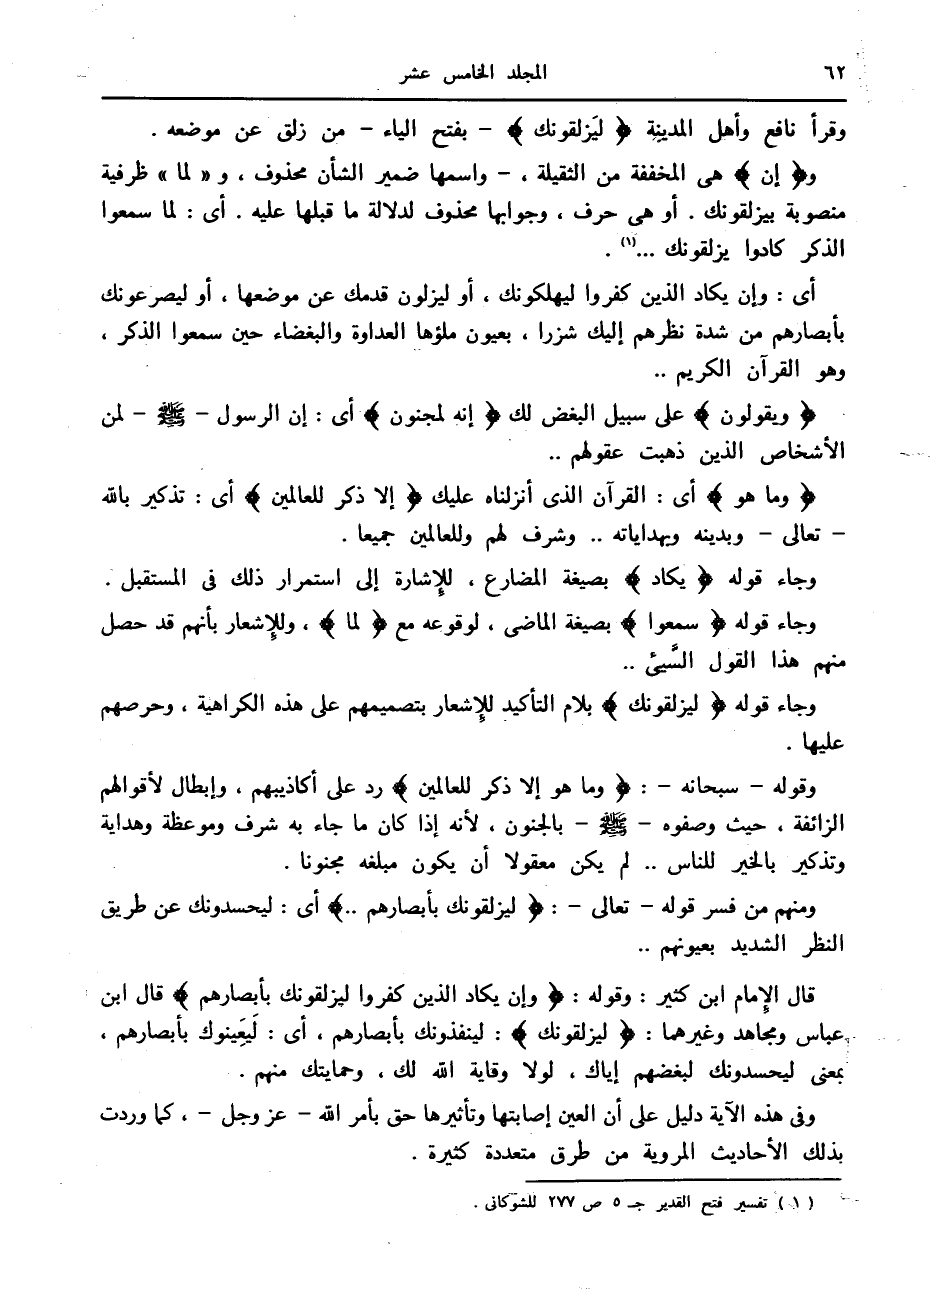 ٦٢
المجلد الخامس عشر
وقرأ نافع وأهل المدينة ﴿ ليَزلقونك ﴾ – بفتح الياء – من زلق عن موضعه .
و﴿ إن ﴾ هى المخففة من الثقيلة ، – واسمها ضمير الشأن محذوف ، و « لما » ظرفية
منصوبة بيزلقونك . أو هى حرف ، وجوابها محذوف لدلالة ما قبلها عليه . أى : لما سمعوا
الذكر كادوا يزلقونك ...(١) .
أى : وإن يكاد الذين كفروا ليهلكونك ، أو ليزلون قدمك عن موضعها ، أو ليصرعونك
بأبصارهم من شدة نظرهم إليك شزرا ، بعيون ملؤها العداوة والبغضاء حين سمعوا الذكر ،
وهو القرآن الكريم ..
﴿ ويقولون ﴾ على سبيل البغض لك ﴿ إنه لمجنون ﴾ أى : إن الرسول – ﷺ – لمن
الأشخاص الذين ذهبت عقولهم ..
﴿ وما هو ﴾ أى : القرآن الذى أنزلناه عليك ﴿ إلا ذكر للعالمين ﴾ أى : تذكير بالله
– تعالى – وبدينه وبهداياته .. وشرف لهم وللعالمين جميعا .
وجاء قوله ﴿ يكاد ﴾ بصيغة المضارع ، للإشارة إلى استمرار ذلك فى المستقبل .
وجاء قوله ﴿ سمعوا ﴾ بصيغة الماضى ، لوقوعه مع ﴿ لما ﴾ ، وللإشعار بأنهم قد حصل
منهم هذا القول السَّيئ ..
وجاء قوله ﴿ ليزلقونك ﴾ بلام التأكيد للإشعار بتصميمهم على هذه الكراهية ، وحرصهم
عليها .
وقوله – سبحانه – : ﴿ وما هو إلا ذكر للعالمين ﴾ رد على أكاذيبهم ، وإبطال لأقوالهم
الزائفة ، حيث وصفوه – ﷺ – بالجنون ، لأنه إذا كان ما جاء به شرف وموعظة وهداية
وتذكير بالخير للناس .. لم يكن معقولا أن يكون مبلغه مجنونا .
ومنهم من فسر قوله – تعالى – : ﴿ ليزلقونك بأبصارهم ..﴾ أى : ليحسدونك عن طريق
النظر الشديد بعيونهم ..
قال الإمام ابن كثير : وقوله : ﴿ وإن يكاد الذين كفروا ليزلقونك بأبصارهم ﴾ قال ابن
عباس ومجاهد وغيرهما : ﴿ ليزلقونك ﴾ : لينفذونك بأبصارهم ، أى : لَيَعِينوك بأبصارهم ،
بمعنى ليحسدونك لبغضهم إياك ، لولا وقاية الله لك ، وحمايتك منهم .
وفى هذه الآية دليل على أن العين إصابتها وتأثيرها حق بأمر الله – عز وجل – ، كما وردت
بذلك الأحاديث المروية من طرق متعددة كثيرة .
( ١ ) تفسير فتح القدير جـ ٥ ص ٢٧٧ للشوكانى .